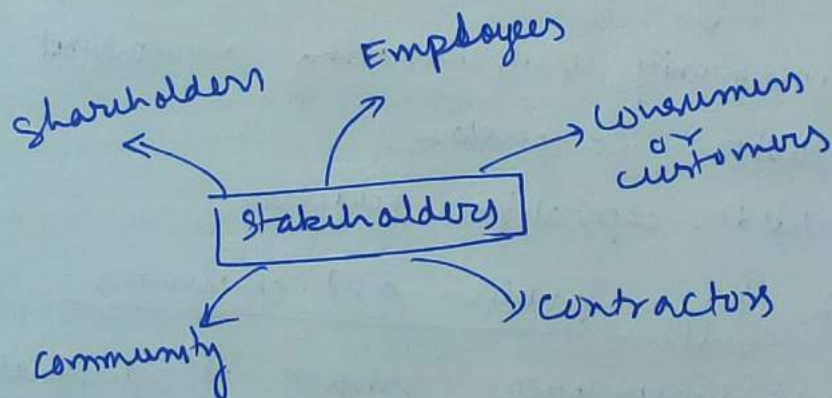 Shareholders
Employees
Consumers
or
customers
Stakeholders
Community
contractors